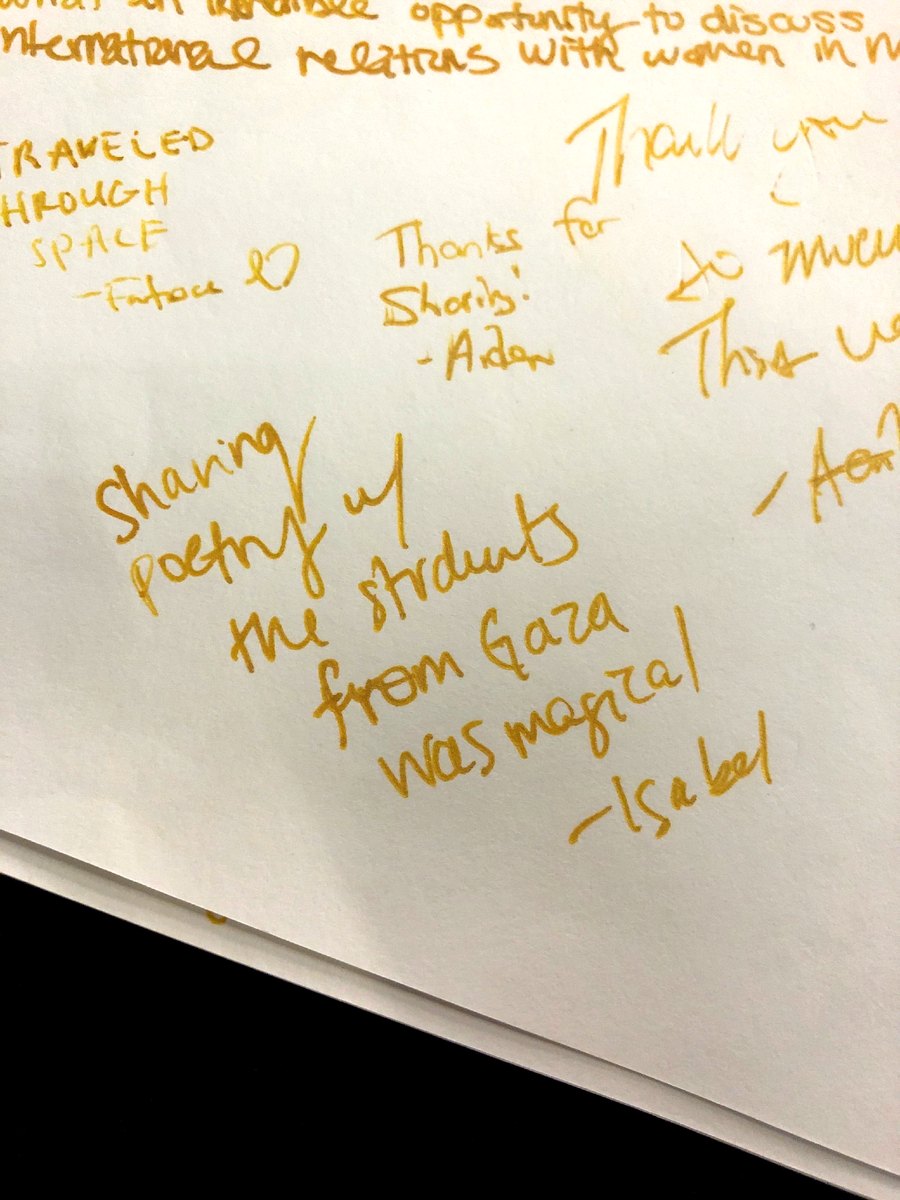 opportunity to discuss
international relations with women in
TRAVELED
THROUGH
SPACE
Thanks for
Sharing!
- Aiden
Thank you
so much
This
Sharing
poetry w/
the students
from Gaza
was magical
-Isabel